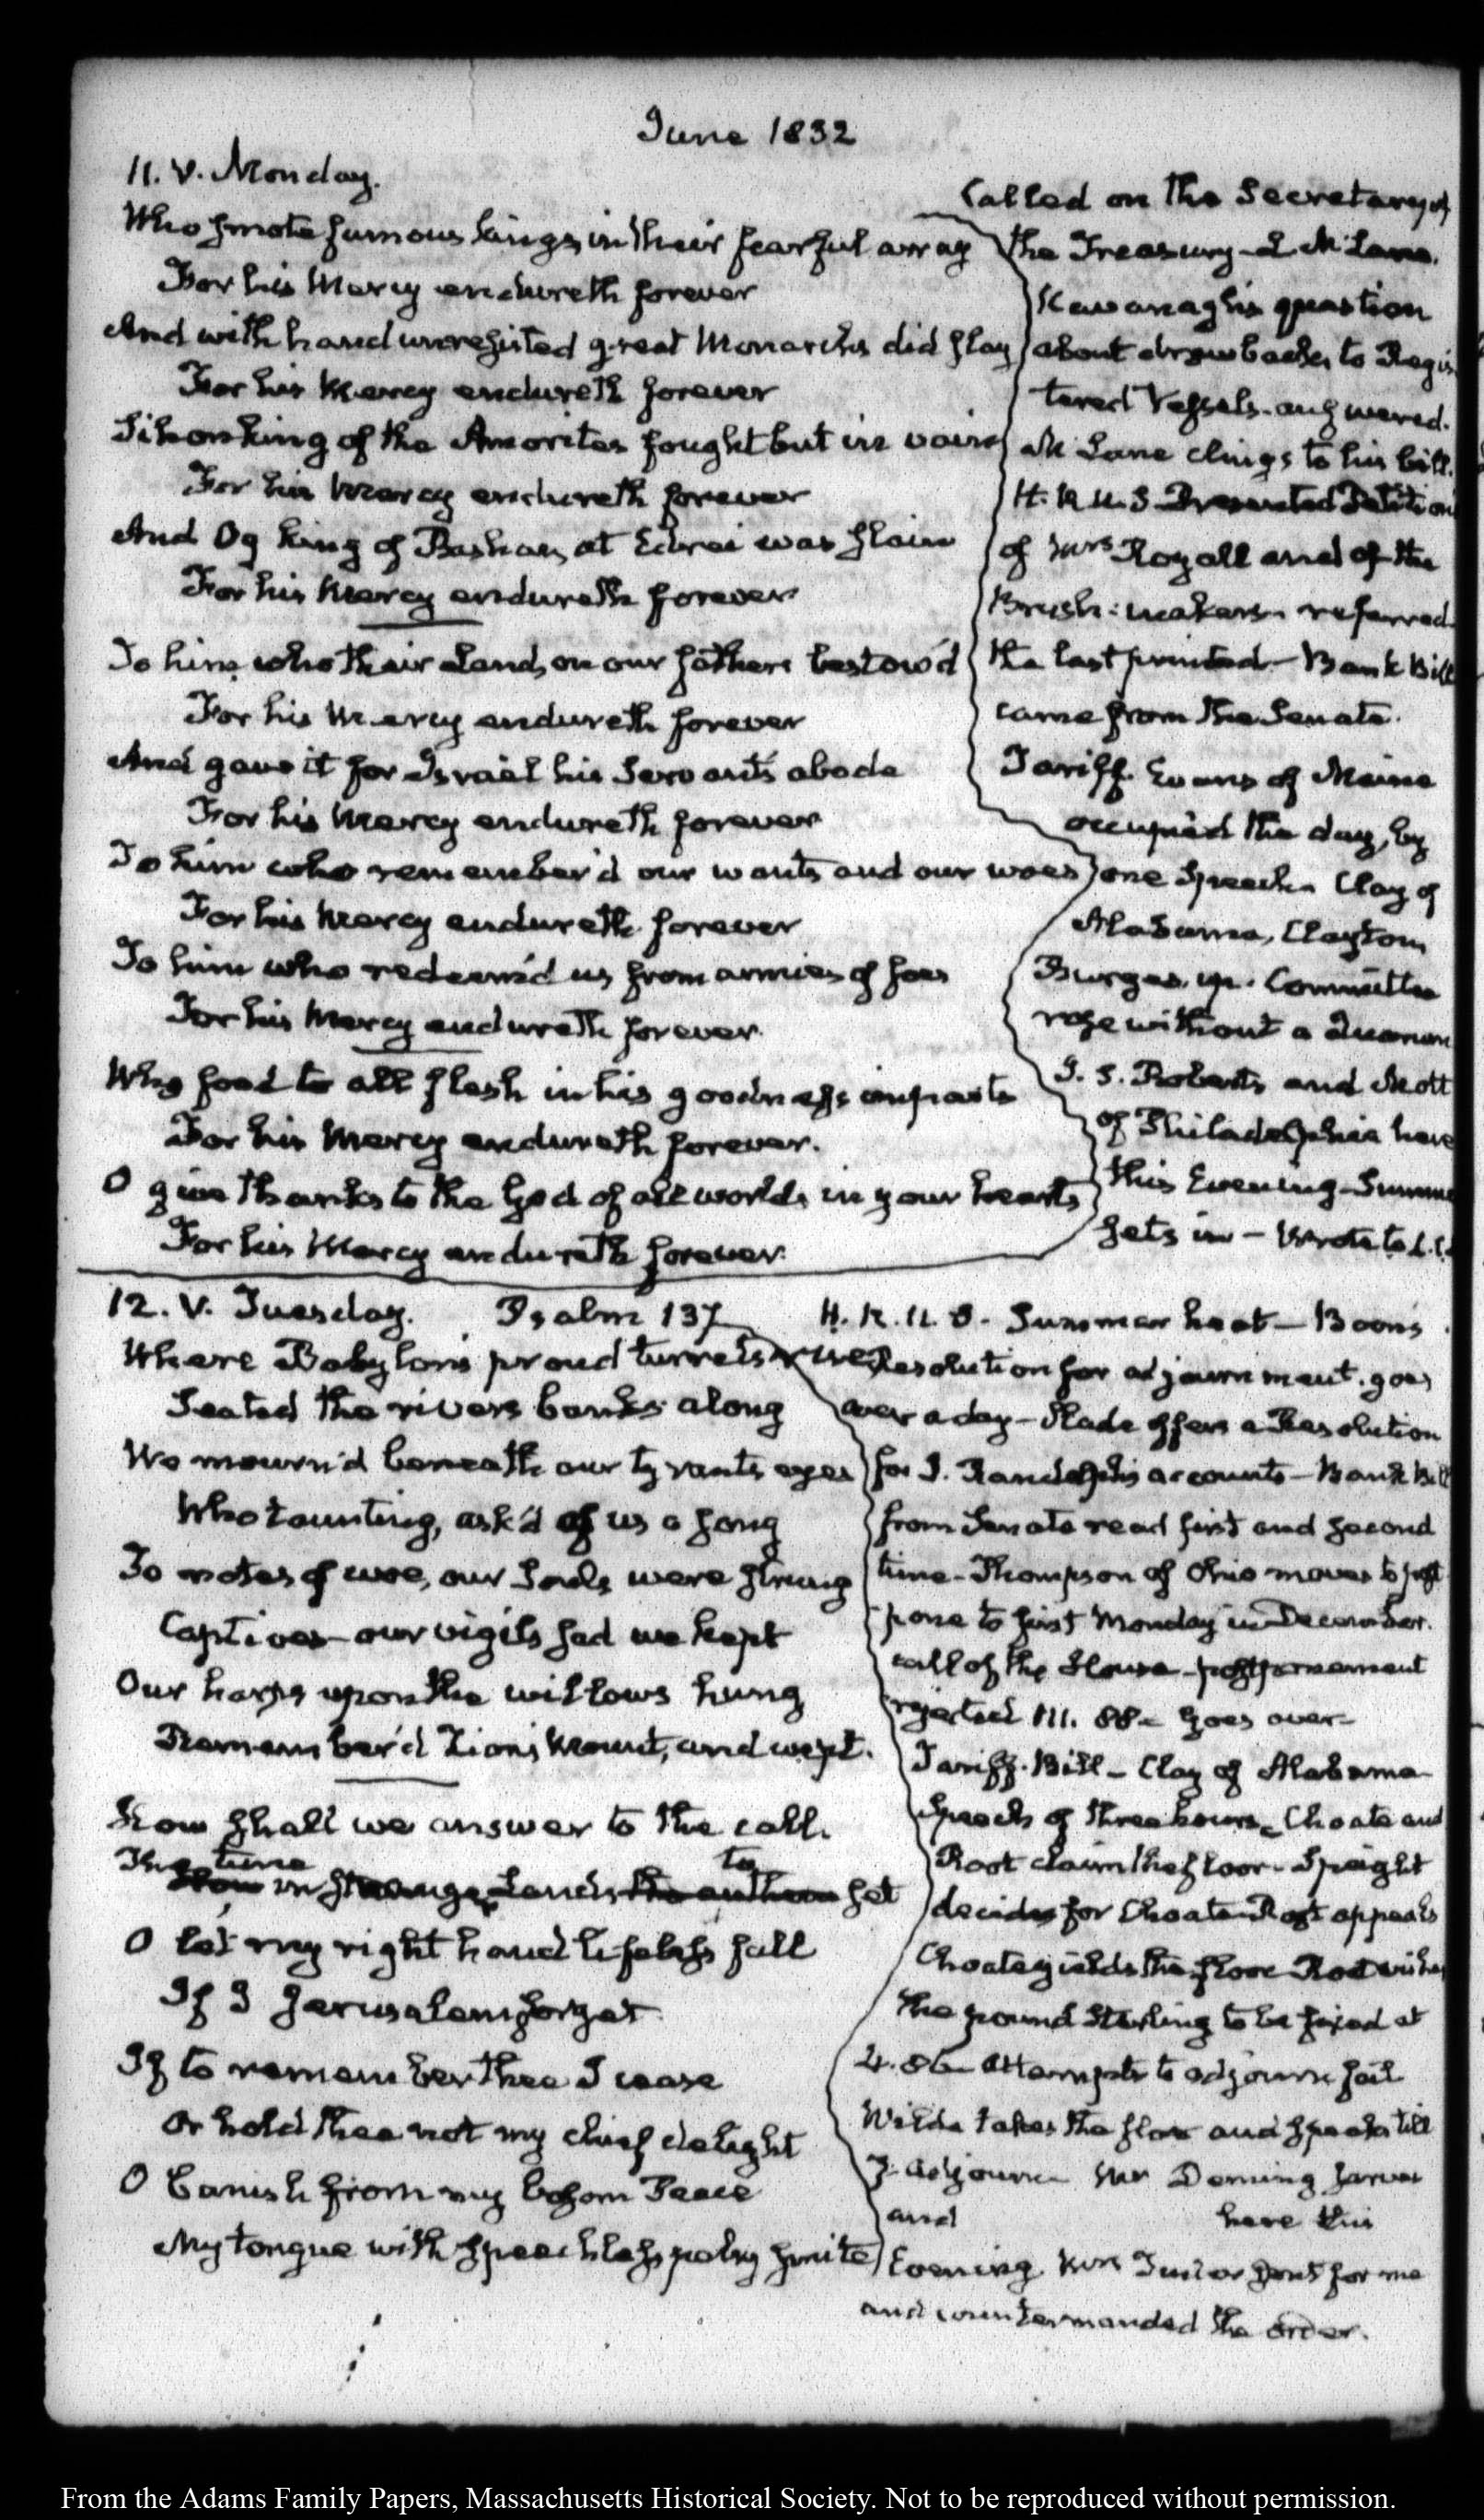 June 1832
11. V. Monday.
Who smote famous kings in their fearful array
For his Mercy endureth forever
And with hand unresisted great Monarchs did slay
For his Mercy endureth forever
Sihon king of the Amorites fought but in vain
For his Mercy endureth forever
And Og king of Bashan, at Edrei was slain
For his Mercy endureth forever
To him, who their Lands on our fathers bestow'd
For his Mercy endureth forever
And gave it for Israel his Servant's abode
For his Mercy endureth forever
To him who remember'd our wants and our woes
For his Mercy endureth forever
To him who redeem'd us from armies of foes
For his Mercy endureth forever.
Who food to all flesh in his goodness imparts
For his Mercy endureth forever.
O give thanks to the God of all worlds in your hearts
For his Mercy endureth forever.
Called on the Secretary of
the Treasury – L McLane.
Kavanagh's question
about drawbacks to Regis
tered Vessels answered.
McLane clings to his bill.
H. R. U. S. Presented Petition
of Mrs Royall and of the
Brush-makers referred.
the last printed – Bank Bill
came from the Senate.
Tariff. Evans of Maine
occupied the day, by
one Speech. Clay of
Alabama, Clayton
Burges. up. Committee
rose without a Quorum
J. S. Roberts and Mott
of Philadelphia here
this Evening – Summer
sets in – Wrote to
12. V. Tuesday. Psalm 137
Where Babylon's proud turrets rise
Seated the rivers banks along
We mourn'd beneath our tyrants eyes
Who taunting, ask'd of us a song
To notes of woe, our Souls were strung
Captives our vigils sad we kept
Our harps upon the willows hung
Remember'd Zion's Mount, and wept.
How shall we answer to the call
Thy tune in strange Lands to set
O let my right hand lifeless fall
If I Jerusalem forget
If to remember thee I cease
Or hold thee not my chief delight
O banish from my bosom Peace
My tongue with speechless palsy smite
H. R. U. S. Summer heat – Boon's
Resolution for adjournment. goes
over a day – Slade offers a Resolution
for J. Randolph's accounts – Bank Bill
from Senate read first and second
time – Thompson of Ohio moves to post
pone to first Monday in December.
call of the House – postponement
rejected 111. 88 – goes over –
Tariff. Bill – Clay of Alabama
Speech of three hours – Choate and
Root claim the floor – Speight
decides for Choate – Root appeals
Choate yields the floor Root wishes
the pound Sterling to be fixed at
4.86 – Attempts to adjourn fail
Wilde takes the floor and speaks till
7. adjourn Mr Deming Jarves
and here this
Evening. Mrs sent for me
and countermanded the order.
From the Adams Family Papers, Massachusetts Historical Society. Not to be reproduced without permission.